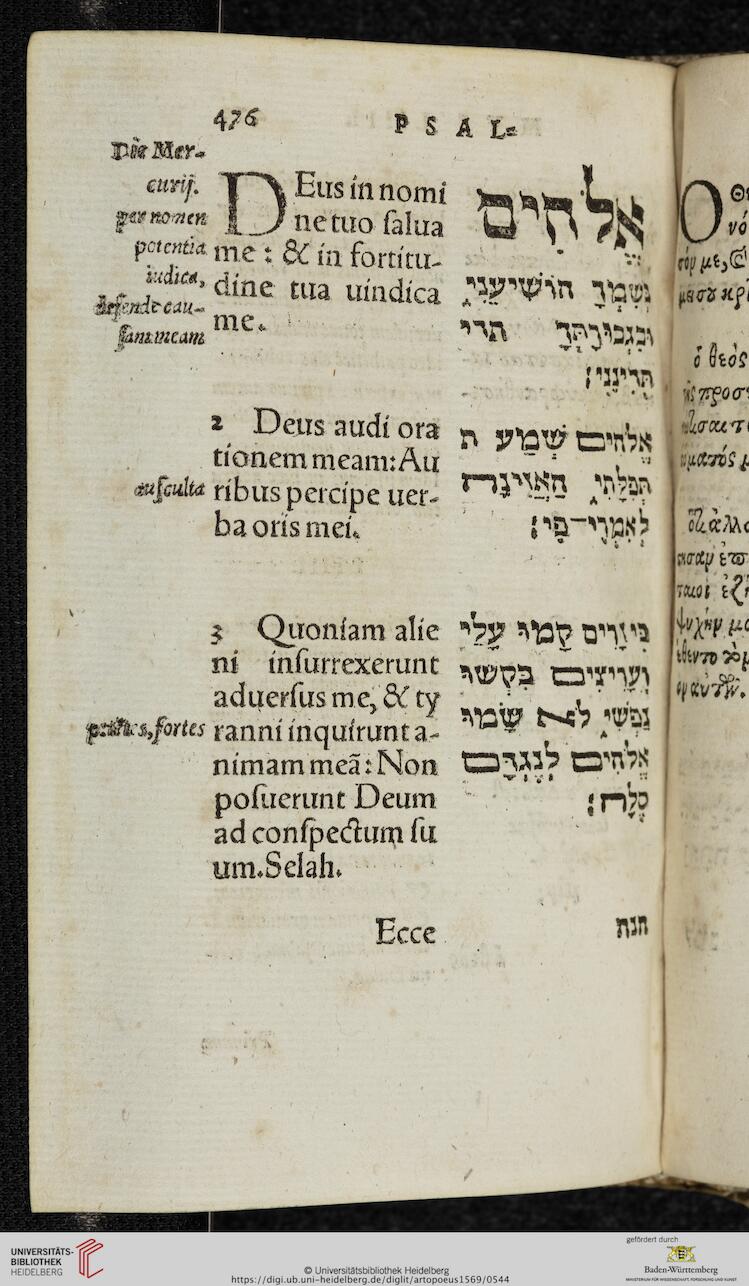 476
PSAL=
Die Mer-
curij.
per nomen
potentia
iudica,
defende cau-
sam meam
DEus in nomi
ne tuo salua
me: & in fortitu-
dine tua uindica
me.
2 Deus audi ora
tionem meam: Au
ribus percipe uer-
ba oris mei.
ausculta
3 Quoniam alie
ni insurrexerunt
aduersus me, & ty
ranni inquirunt a-
nimam meã: Non
posuerunt Deum
ad conspectum su
um. Selah.
fortes
Ecce
אֱלֹהִים
בְּשִׁמְךָ הוֹשִׁיעֵנִי
וּבִגְבוּרָתְךָ תדי
תְּדִינֵנִי׃
אֱלֹהִים שְׁמַע ת
תְּפִלָּתִי הַאֲזִינָה
לְאִמְרֵי־פִי׃
כִּי זָרִים קָמוּ עָלַי
וְעָרִיצִים בִּקְשׁוּ
נַפְשִׁי לֹא שָׂמוּ
אֱלֹהִים לְנֶגְדָּם
סֶלָה׃
הנה
Θε
νό
ὁ θεὸς
UNIVERSITÄTS-
BIBLIOTHEK
HEIDELBERG
© Universitätsbibliothek Heidelberg
https://digi.ub.uni-heidelberg.de/diglit/artopoeus1569/0544
gefördert durch
Baden-Württemberg
MINISTERIUM FÜR WISSENSCHAFT, FORSCHUNG UND KUNST